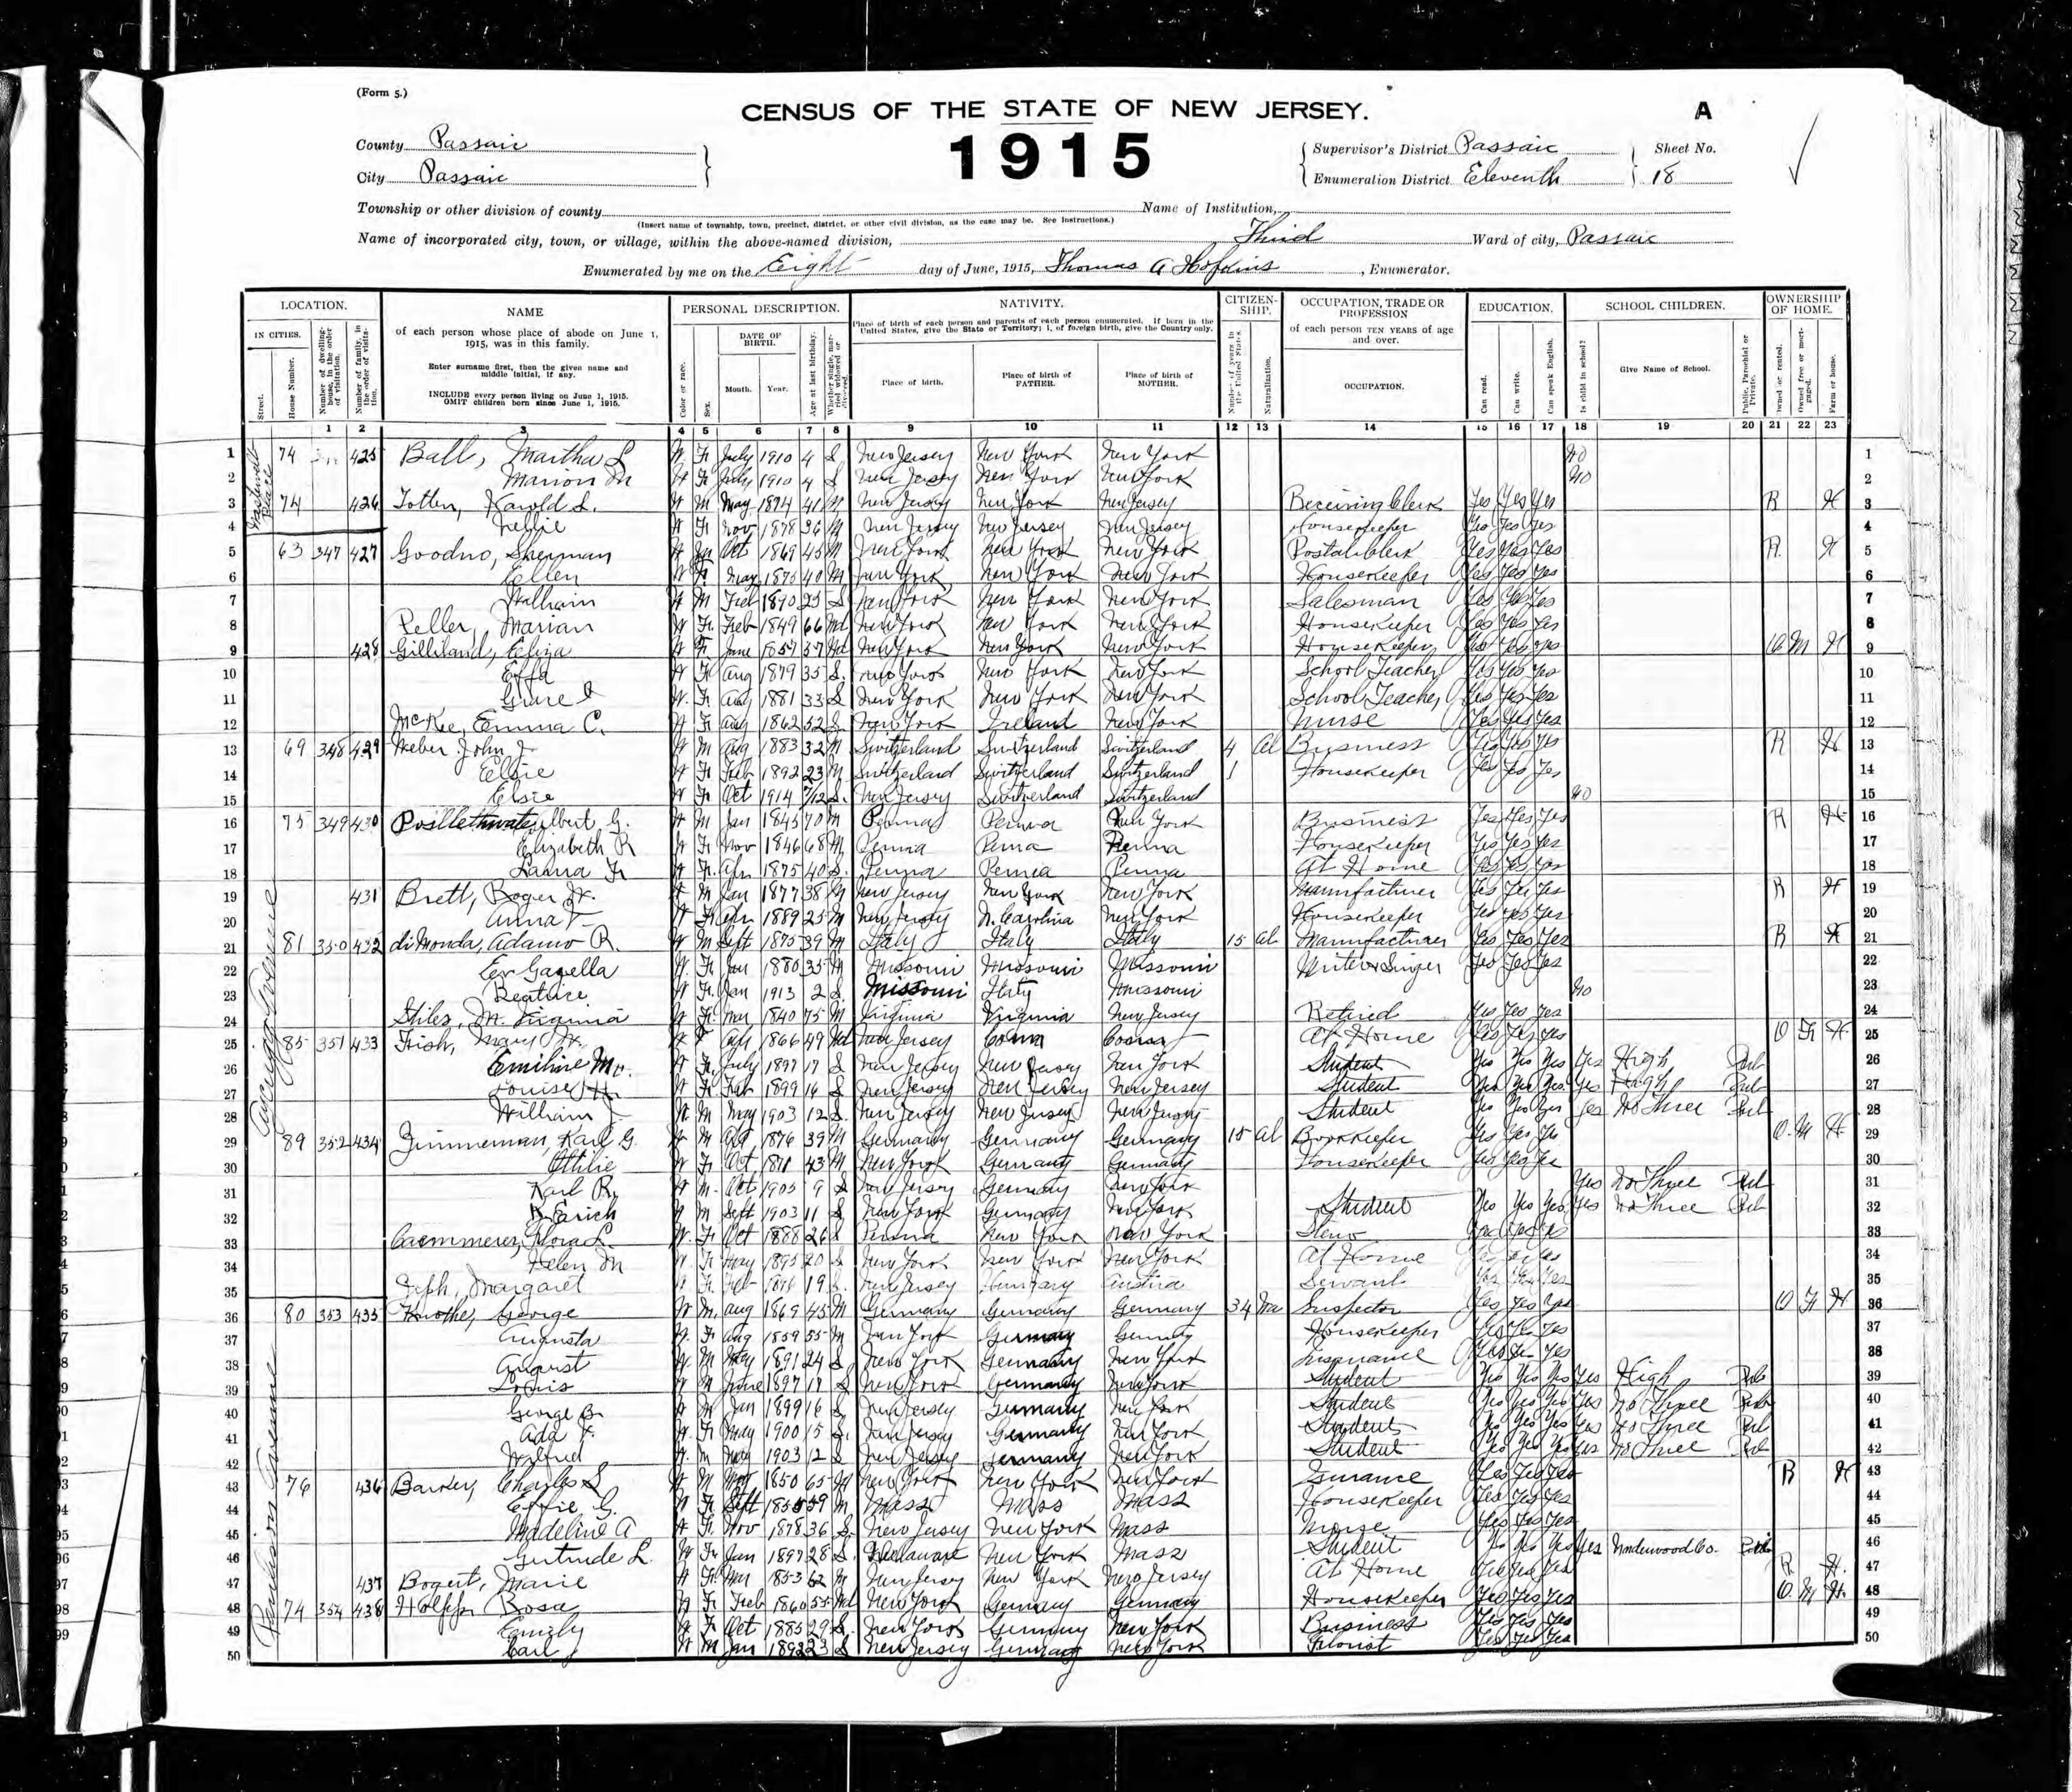 (Form 5.)
CENSUS OF THE STATE OF NEW JERSEY.
A
1915
County Passaic
City Passaic
Supervisor's District Passaic
Enumeration District Eleventh
Sheet No.
18
Township or other division of county
Name of Institution,
(Insert name of township, town, precinct, district, or other civil division, as the case may be. See Instructions.)
Name of incorporated city, town, or village, within the above-named division, Third Ward of city, Passaic
Enumerated by me on the Eight day of June, 1915, Thomas A Hopkins, Enumerator.
LOCATION. NAME PERSONAL DESCRIPTION. NATIVITY. CITIZEN-SHIP. OCCUPATION, TRADE OR PROFESSION EDUCATION. SCHOOL CHILDREN. OWNERSHIP OF HOME.
IN CITIES.
Street. House Number. Number of dwelling-house, in the order of visitation. Number of family, in the order of visitation.
of each person whose place of abode on June 1, 1915, was in this family.
Enter surname first, then the given name and middle initial, if any.
INCLUDE every person living on June 1, 1915. OMIT children born since June 1, 1915.
Color or race. Sex. DATE OF BIRTH. Month. Year. Age at last birthday. Whether single, married widowed or divorced.
Place of birth of each person and parents of each person enumerated. If born in the United States, give the State or Territory; i, of foreign birth, give the Country only.
Place of birth. Place of birth of FATHER. Place of birth of MOTHER.
Number of years in the United States. Naturalization.
of each person TEN YEARS of age and over.
OCCUPATION.
Can read. Can write. Can speak English. Is child in school? Give Name of School. Public, Parochial or Private. Owned or rented. Owned free or mortgaged. Farm or house.
1 2 3 4 5 6 7 8 9 10 11 12 13 14 15 16 17 18 19 20 21 22 23
1 74 425 Ball, Martha L W F July 1910 4 S New Jersey New York New York No 1
2 Marion M W F July 1910 4 S New Jersey New York New York No 2
3 74 426 Totten, Harold S. W M May 1874 41 M New Jersey New York New Jersey Receiving Clerk Yes Yes Yes R H 3
4 Nellie W F Nov 1878 36 M New Jersey New Jersey New Jersey Housekeeper Yes Yes Yes 4
5 63 347 427 Goodno, Sherman W M Oct 1869 45 M New York New York New York Postal Clerk Yes Yes Yes R H 5
6 Ellen W F May 1875 40 M New York New York New York Housekeeper Yes Yes Yes 6
7 William W M Feb 1890 25 S New York New York New York Salesman Yes Yes Yes 7
8 Peller, Marian W F Feb 1849 66 Wd New York New York New York Housekeeper Yes Yes Yes 8
9 428 Gilliland, Eliza W F June 57 Wd New York New York New York Housekeeper Yes Yes Yes O M H 9
10 Effa W F Aug 1879 35 S New York New York New York School Teacher Yes Yes Yes 10
11 W F Aug 1881 33 S New York New York New York School Teacher Yes Yes Yes 11
12 McKee, Emma C. W F Aug 1862 52 S New York Ireland New York Nurse Yes Yes Yes 12
13 69 348 429 Weber John J W M Aug 1883 32 M Switzerland Switzerland Switzerland 4 Al Business Yes Yes Yes R H 13
14 Elsie W F Feb 1892 23 M Switzerland Switzerland Switzerland 1 Housekeeper Yes Yes Yes 14
15 Elsie W F Oct 1914 7/12 S New Jersey Switzerland Switzerland No 15
16 75 349 430 Postlethwate, Albert G. W M Jan 1845 70 M Penna Penna New York Business Yes Yes Yes R H 16
17 Elizabeth R W F Nov 1846 68 M Penna Penna Penna Housekeeper Yes Yes Yes 17
18 W F Apr 1875 40 S Penna Penna Penna At Home Yes Yes Yes 18
19 431 Brett, Roger W. W M Jan 1877 38 M New Jersey New York New York Manufacturer Yes Yes Yes R H 19
20 Anna F W F Apr 1889 25 M New Jersey N. Carolina New York Housekeeper Yes Yes Yes 20
21 81 350 432 diMonda, Adamo R. W M Sept 1875 39 M Italy Italy Italy 15 Al Manufacturer Yes Yes Yes R H 21
22 W F Jan 1880 35 M Missouri Missouri Missouri Writer & Singer Yes Yes Yes 22
23 Beatrice W F Jan 1913 2 S Missouri Italy Missouri No 23
24 Stiles, M. Virginia W F Mar 1840 75 M Virginia Virginia New Jersey Retired Yes Yes Yes 24
25 85 351 433 Frish, Mary W F Apr 1866 49 Wd New Jersey Conn Conn At Home Yes Yes Yes O F H 25
26 Emiline Mc. W F July 1897 17 S New Jersey New Jersey New York Student Yes Yes Yes Yes High Pub 26
27 Louise H. W F Feb 1899 16 S New Jersey New Jersey New Jersey Student Yes Yes Yes Yes High Pub 27
28 William J W M May 1903 12 S New Jersey New Jersey New Jersey Student Yes Yes Yes Yes No Three Pub 28
29 89 352 434 Zimmerman, Karl G. W M Apr 1876 39 M Germany Germany Germany 15 Al Bookkeeper Yes Yes Yes O M H 29
30 Ottilie W F Oct 1871 43 M New York Germany Germany Housekeeper Yes Yes Yes 30
31 Karl R. W M Oct 1905 9 S New Jersey Germany New York Yes No Three Pub 31
32 Erich W M Sept 1903 11 S New York Germany New York Student Yes Yes Yes Yes No Three Pub 32
33 Caemmerer, Flora L. W F Oct 1888 26 S Penna New York New York Steno Yes Yes Yes 33
34 Helen M W F May 1895 20 S New York New York New York At Home 34
35 Margaret W F Feb 1896 19 S New Jersey Hungary Austria Servant Yes Yes Yes 35
36 80 353 435 Knothe, George W M Aug 1869 45 M Germany Germany Germany 34 Na Inspector Yes Yes Yes O F H 36
37 Augusta W F Aug 1859 55 M New York Germany Germany Housekeeper Yes Yes Yes 37
38 August W M May 1891 24 S New York Germany New York Insurance Yes Yes Yes 38
39 Louis W M June 1897 17 S New York Germany New York Student Yes Yes Yes Yes High Pub 39
40 George B. W M Jan 1899 16 S New Jersey Germany New York Student Yes Yes Yes Yes No Three Pub 40
41 Ada F. W F May 1900 15 S New Jersey Germany New York Student Yes Yes Yes Yes No Three Pub 41
42 Wilfred W M May 1903 12 S New Jersey Germany New York Student Yes Yes Yes Yes No Three Pub 42
43 76 436 Barker, Charles S W M May 1850 65 M New York New York New York Yes Yes Yes R H 43
44 Effie G. W F Sept 1855 59 M Mass Mass Mass Housekeeper Yes Yes Yes 44
45 Madeline A W F Nov 1878 36 S New Jersey New York Mass Nurse Yes Yes Yes 45
46 Gertrude L. W F Jan 1897 28 S Delaware New York Mass Student Yes Yes Yes Yes Underwood Co. 46
47 437 Bogert, Marie W F Mar 1853 62 M New Jersey New York New Jersey At Home Yes Yes Yes R H. 47
48 74 354 438 Rosa W F Feb 1860 55 Wd New York Germany Germany Housekeeper Yes Yes Yes O M H 48
49 Emily W F Oct 1885 29 S New York Germany New York Business Yes Yes Yes 49
50 Carl J W M Jan 1892 23 S New Jersey Germany New York Florist Yes Yes Yes 50